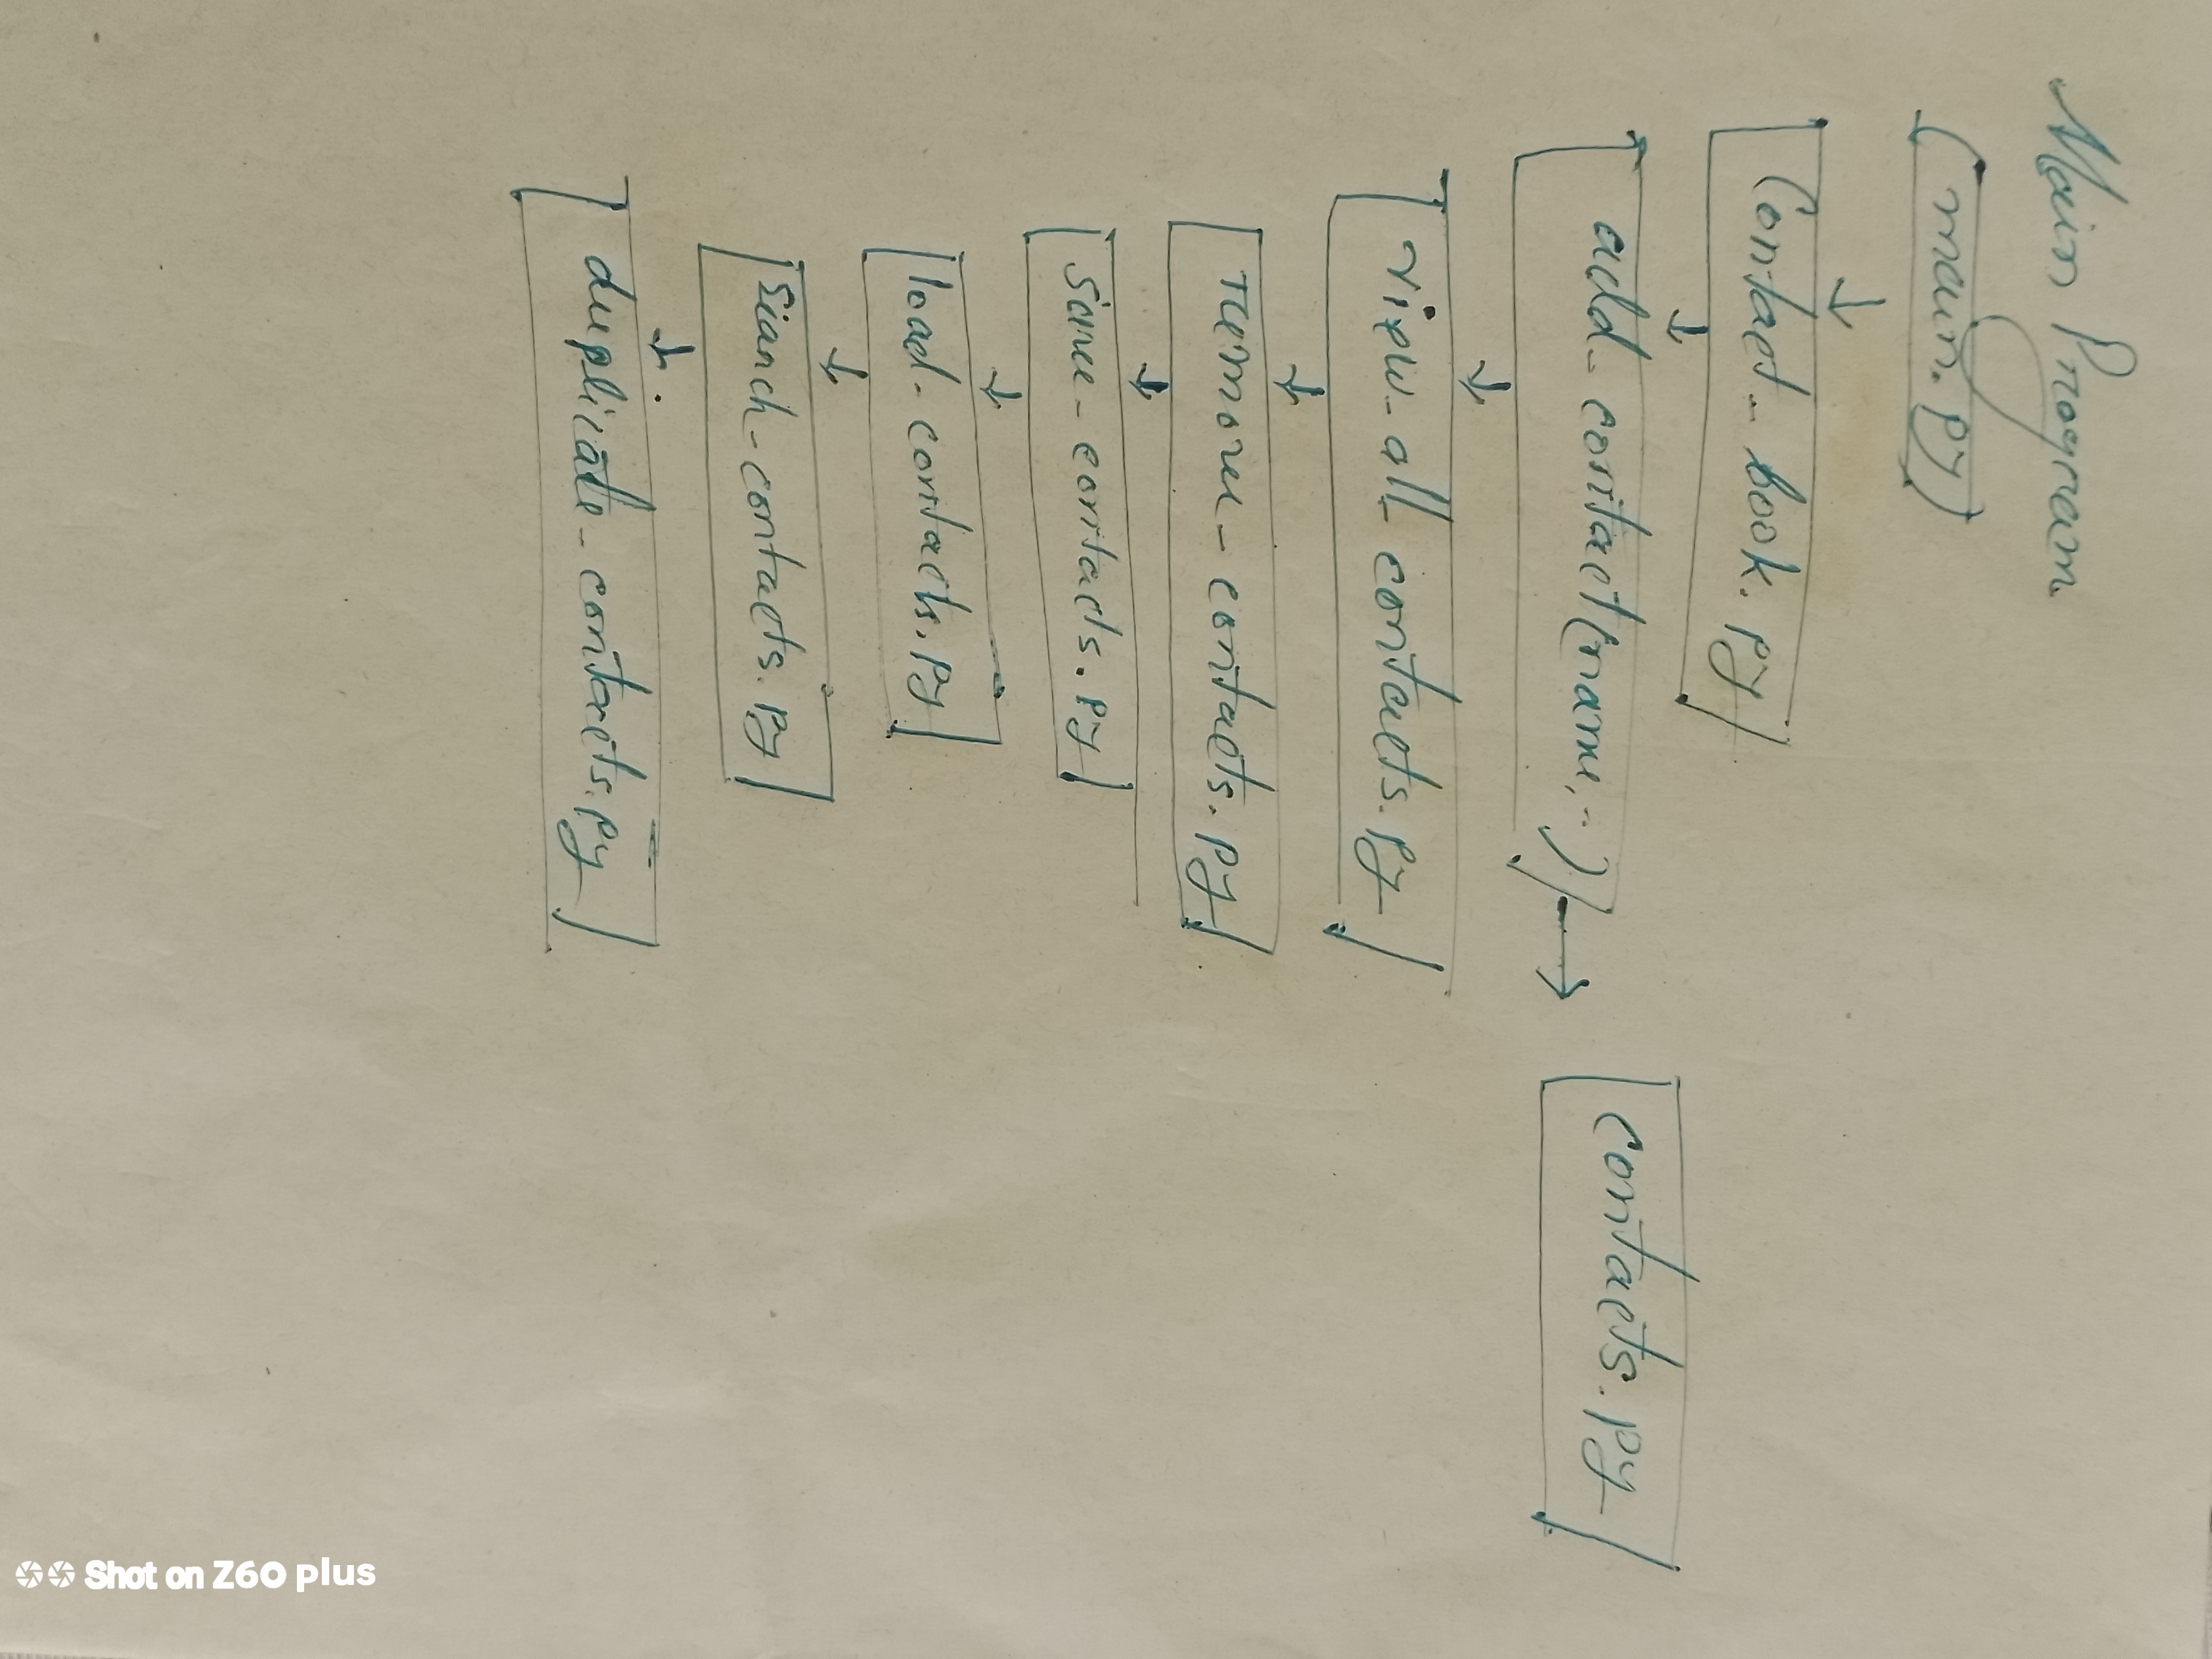 Main Program
(main.py)
Contact_book.py
add_contact(name,..)
contacts.py
view_all_contacts.py
remove_contacts.py
save_contacts.py
load_contacts.py
Search_contacts.py
duplicate_contacts.py
Shot on Z60 plus